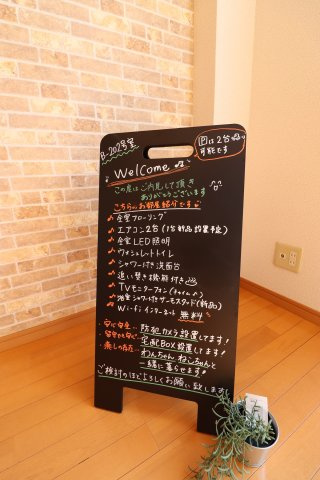 B-202号室
Pは2台可能です
Welcome♪
この度はご内見して頂き
ありがとうございます
こちらのお部屋紹介です♪
♪全室フローリング
♪エアコン2台(1台新品設置予定)
♪全室LED照明
♪ウォシュレットトイレ
♪シャワー付き洗面台
♪追い焚き機能付き
♪TVモニターフォン
♪浴室シャワー付きサーモスタット(新品)
♪Wi-fiインターネット無料
・安心安全… 防犯カメラ設置してます!
宅配BOX設置してます!
・癒しの存在… わんちゃんねこちゃんと
一緒に暮らせます!
ご検討のほどよろしくお願い致します!